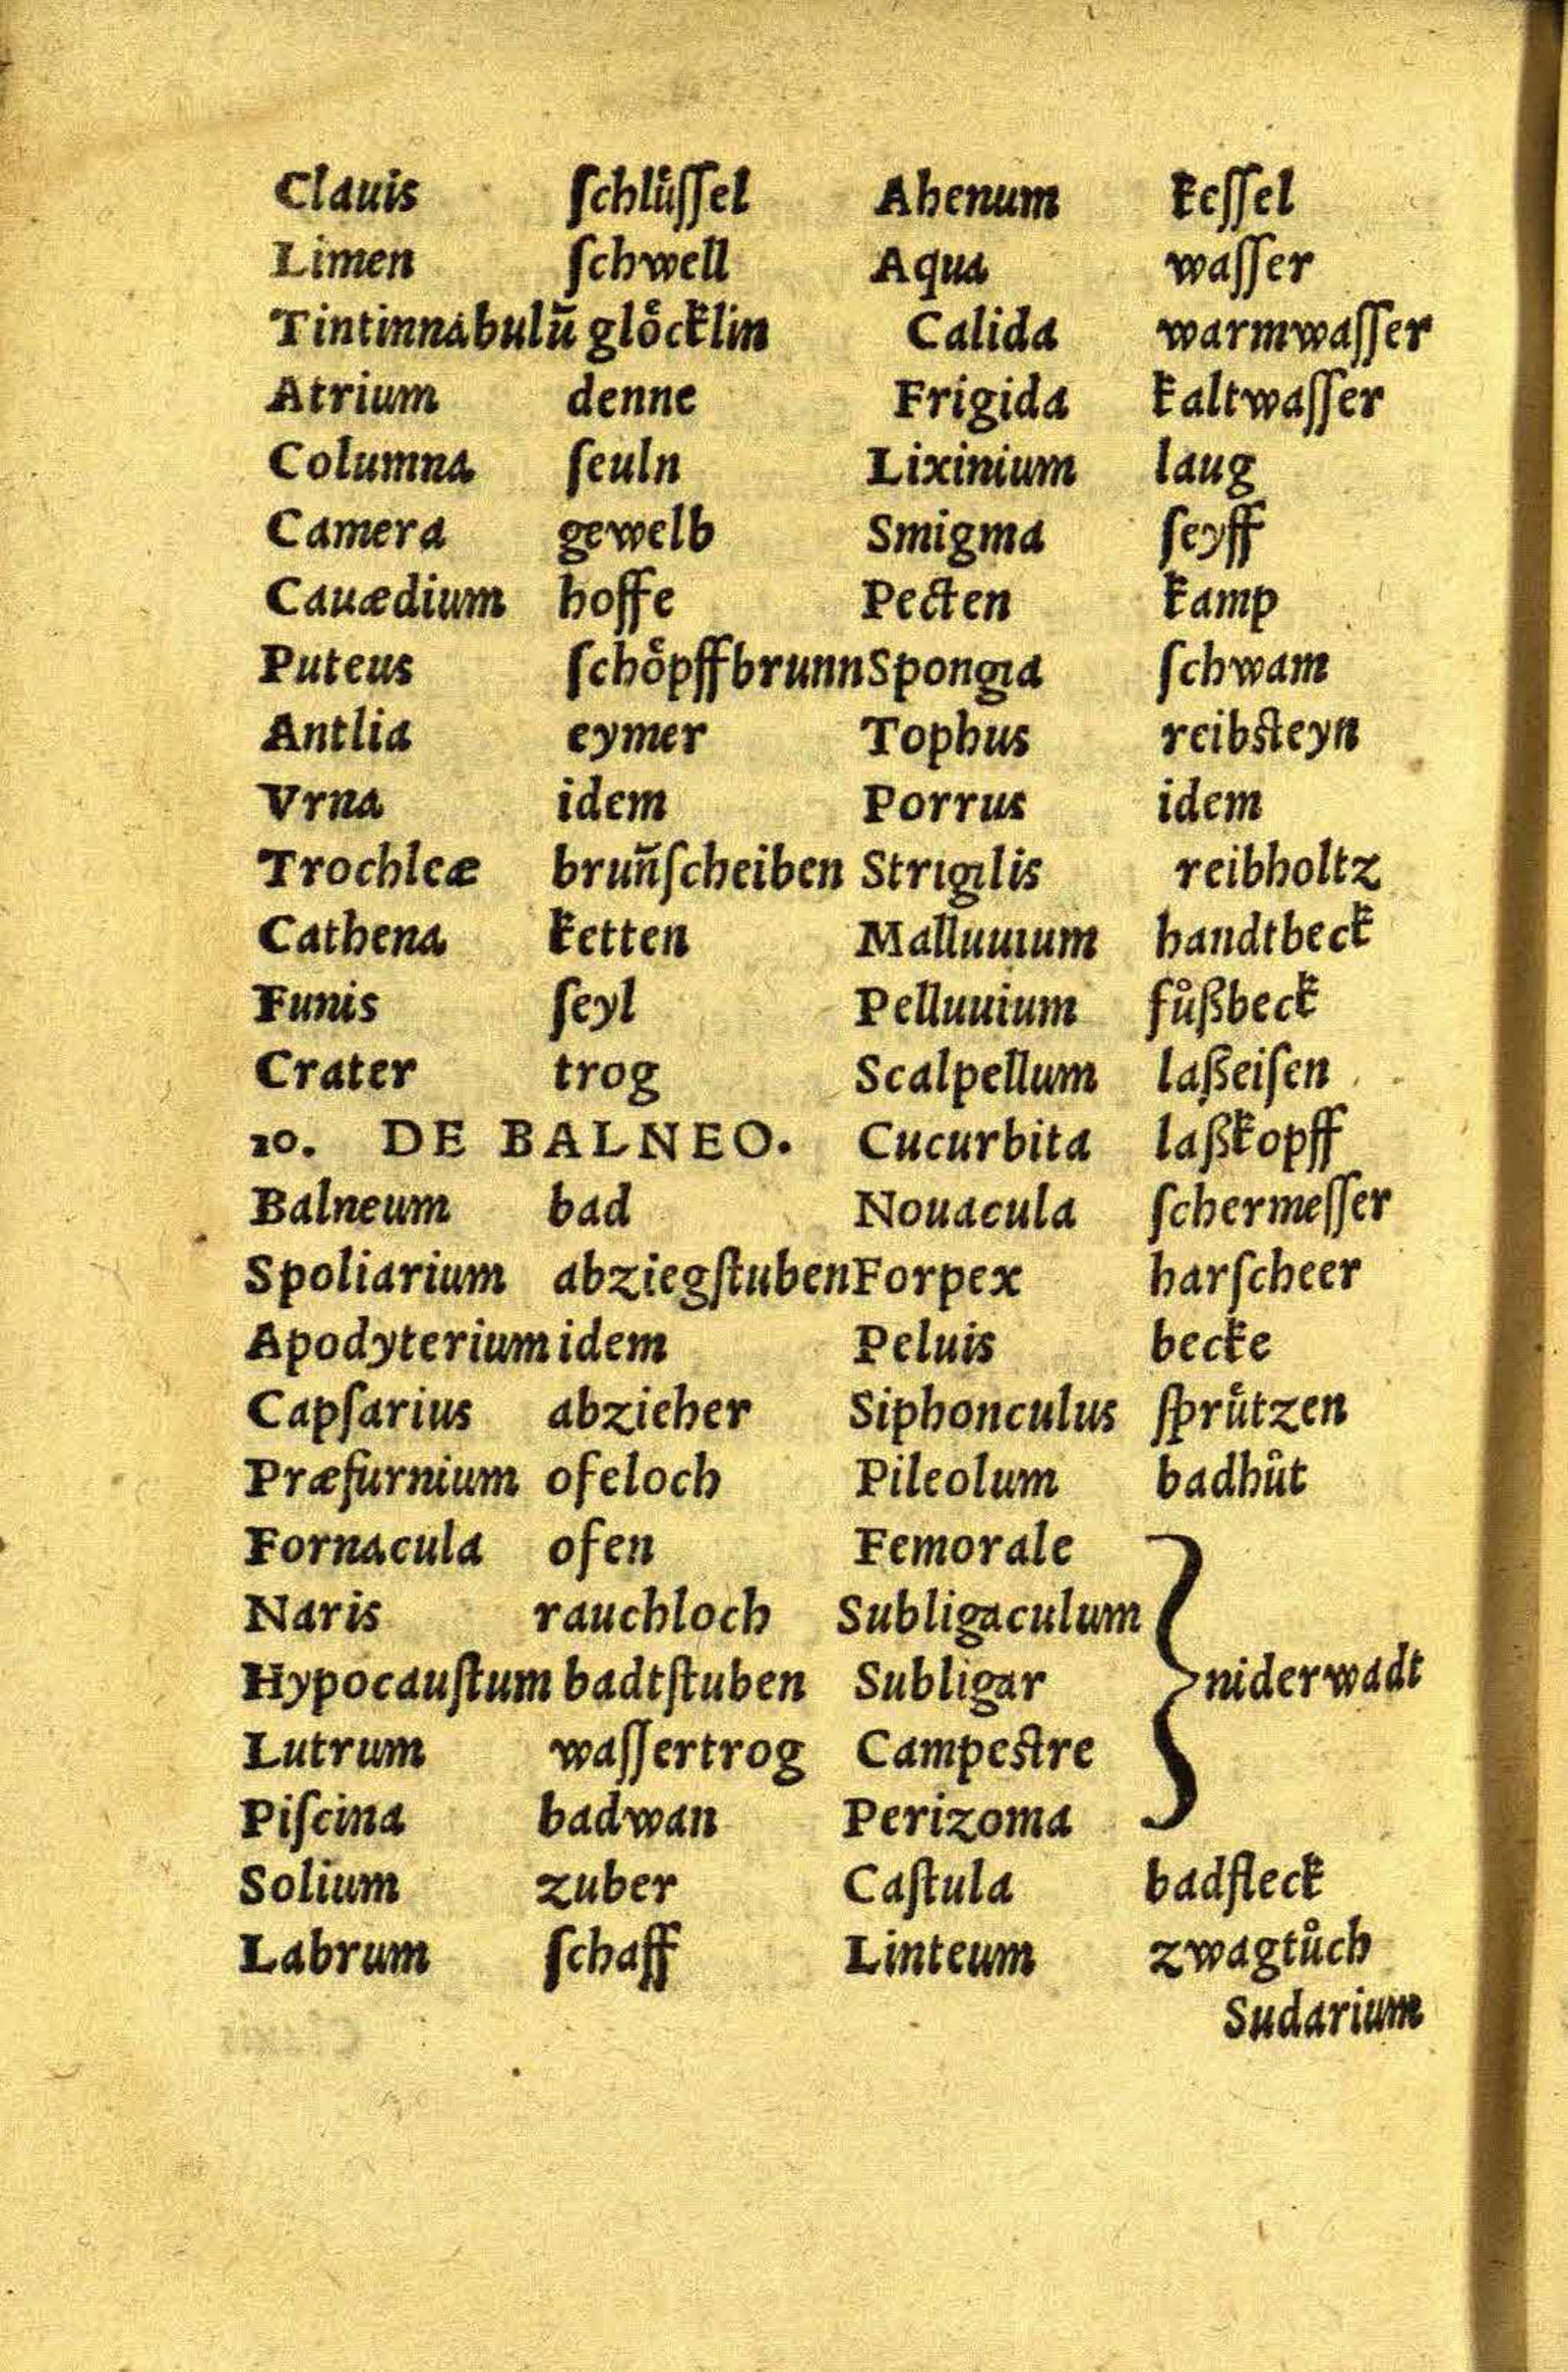 Clauis ſchluͤſſel
Limen ſchwell
Tintinnabulū gloͤcklin
Atrium denne
Columna ſeuln
Camera gewelb
Cauædium hoffe
Puteus ſchoͤpffbrunn
Antlia eymer
Vrna idem
Trochleæ brun̄ſcheiben
Cathena ketten
Funis ſeyl
Crater trog
10. DE BALNEO.
Balneum bad
Spoliarium abziegſtuben
Apodyterium idem
Capſarius abzieher
Præfurnium ofeloch
Fornacula ofen
Naris rauchloch
Hypocauſtum badtſtuben
Lutrum waſſertrog
Piſcina badwan
Solium zuber
Labrum ſchaff
Ahenum keſſel
Aqua waſſer
Calida warmwaſſer
Frigida kaltwaſſer
Lixinium laug
Smigma ſeyff
Pecten kamp
Spongia ſchwam
Tophus reibſteyn
Porrus idem
Strigilis reibholtz
Malluuium handtbeck
Pelluuium fuͦßbeck
Scalpellum laßeiſen
Cucurbita laßkopff
Nouacula ſchermeſſer
Forpex harſcheer
Peluis becke
Siphonculus ſpruͤtzen
Pileolum badhuͦt
Femorale
Subligaculum
Subligar niderwadt
Campeſtre
Perizoma
Caſtula badfleck
Linteum zwagtuͦch
Sudarium